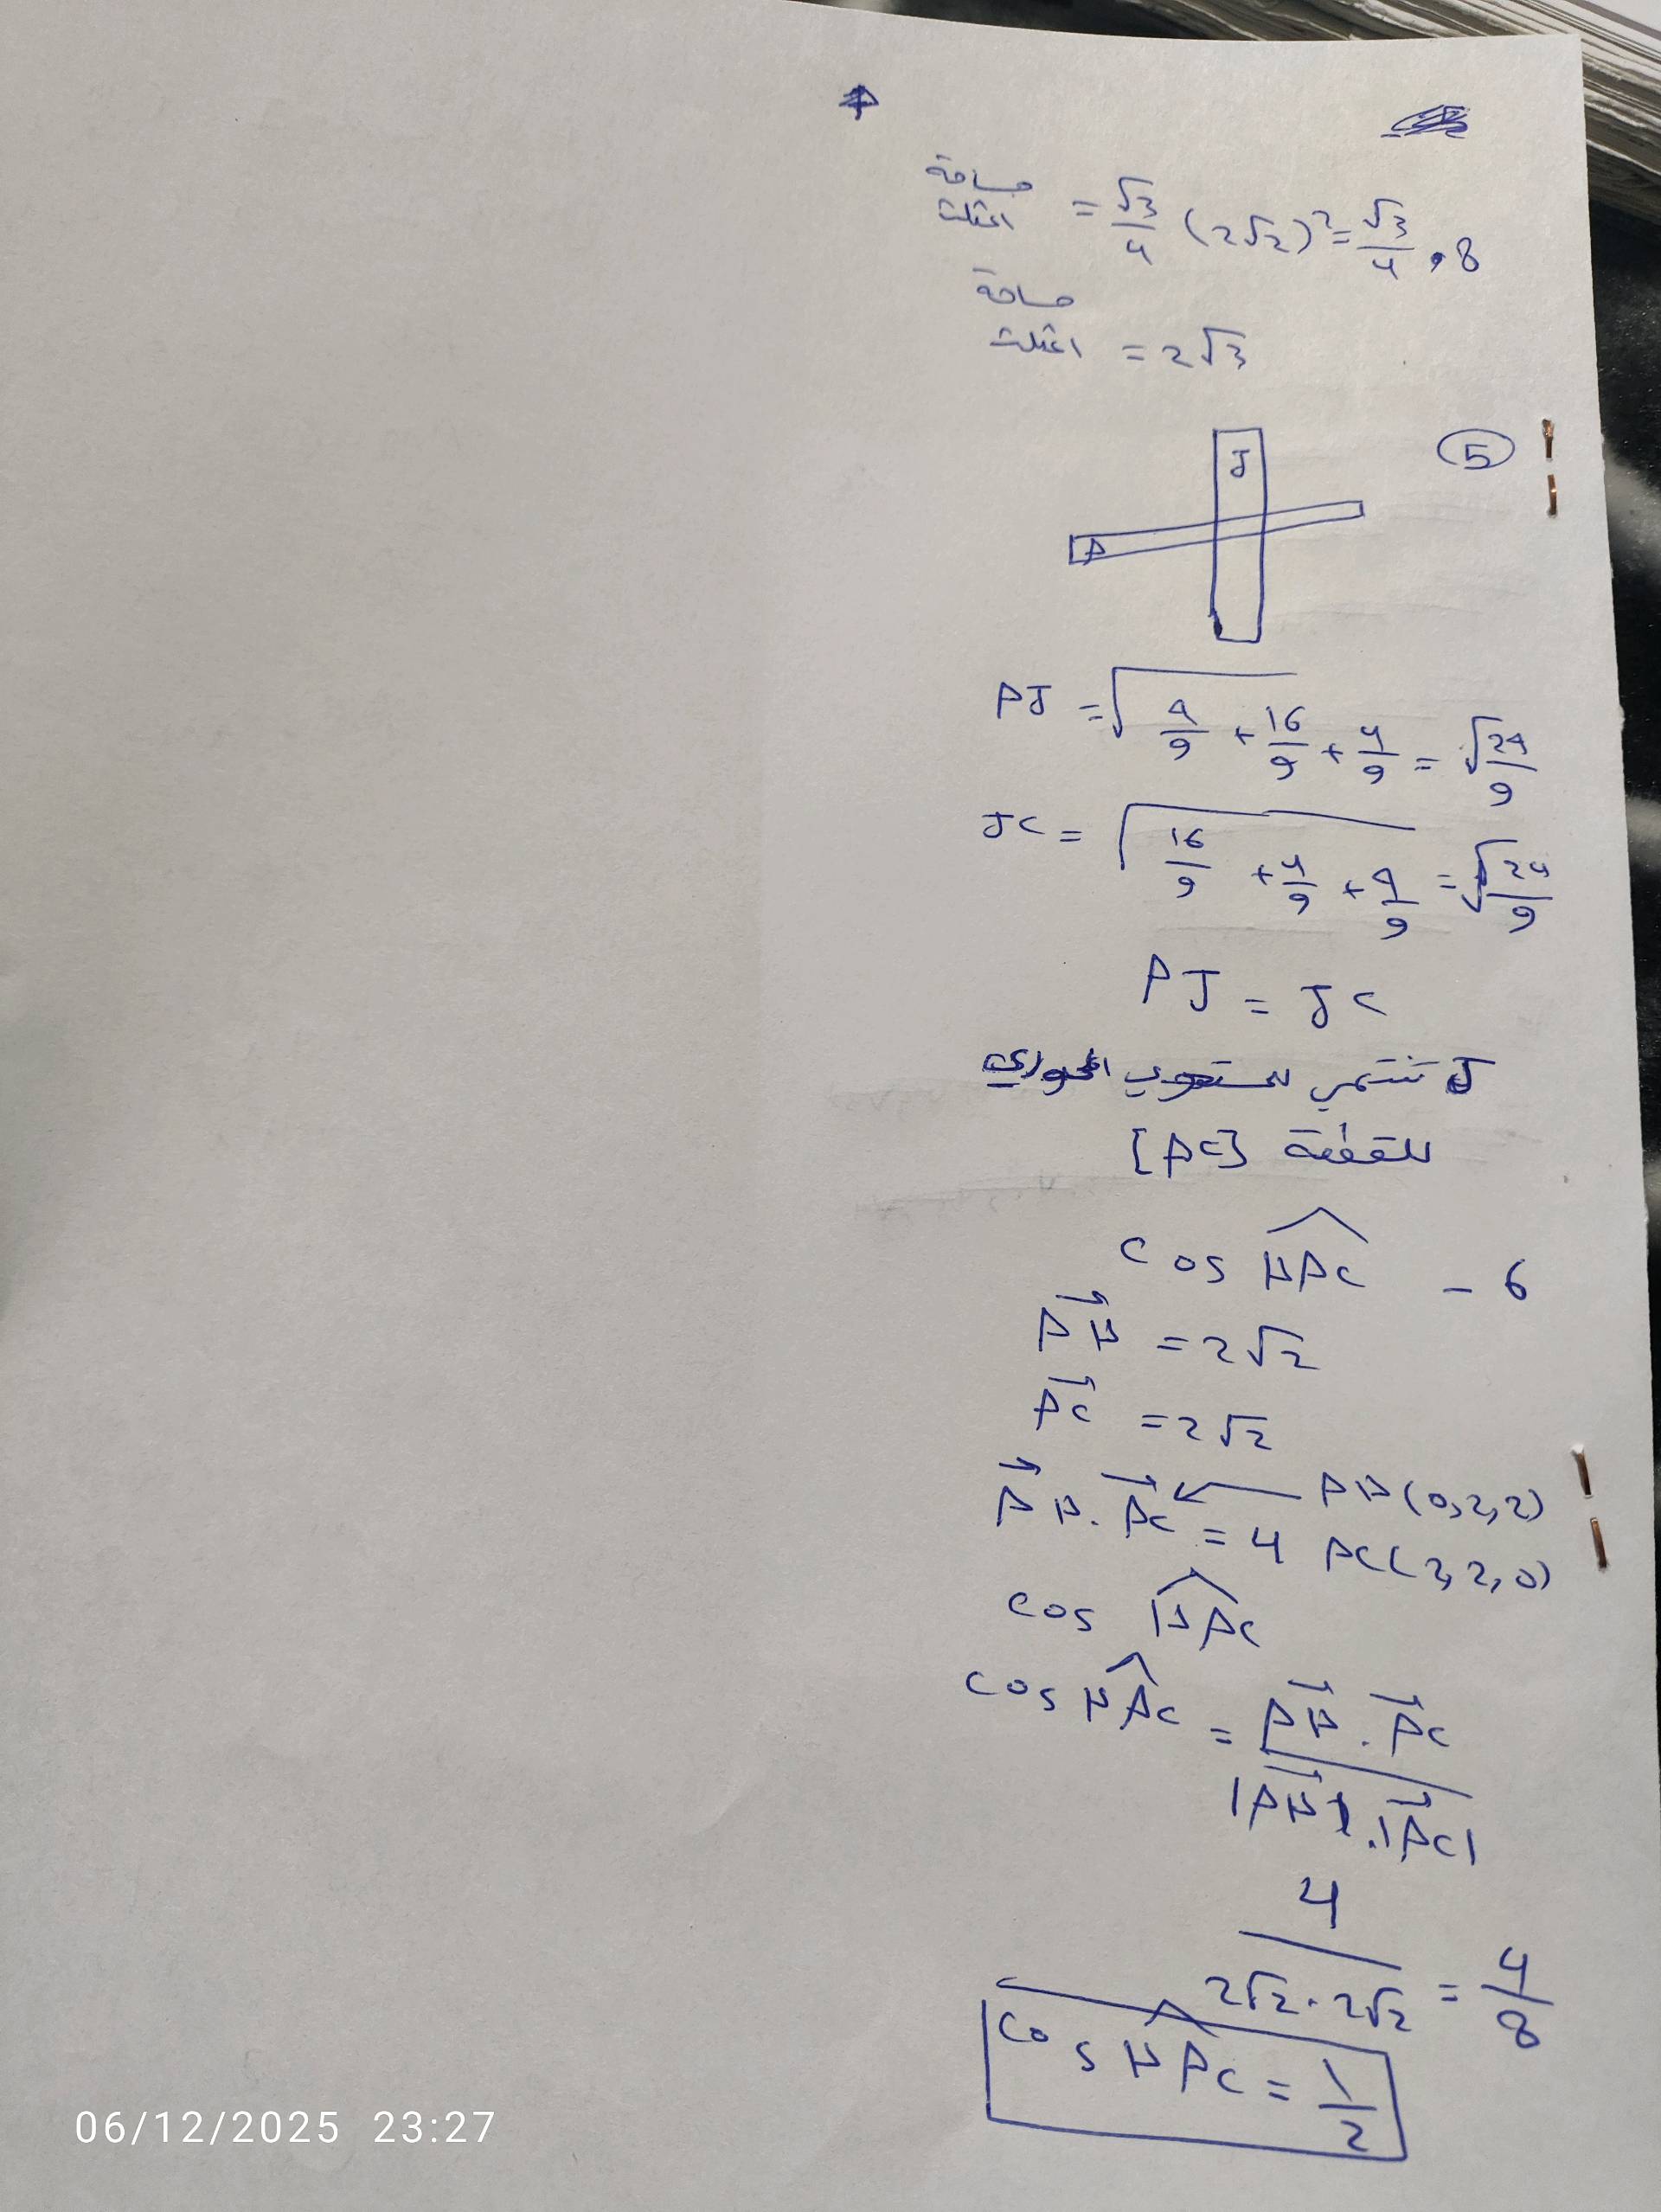 مساحة المثلث = √3/4 (2√2)² = √3/4 . 8
مساحة المثلث = 2√3
5
J
A
AJ = √(4/9 + 16/9 + 4/9) = √(24/9)
JC = √(16/9 + 4/9 + 4/9) = √(24/9)
AJ = JC
J تنتمي للمستوي المحوري
للقطعة [AC]
cos BAC - 6
AB = 2√2
AC = 2√2
AB . AC = 4 ← AB (0,2,2)
AC (2,2,0)
cos BAC
cos BAC = AB . AC / |AB| . |AC|
4 / 2√2 . 2√2 = 4/8
cos BAC = 1/2
06/12/2025 23:27